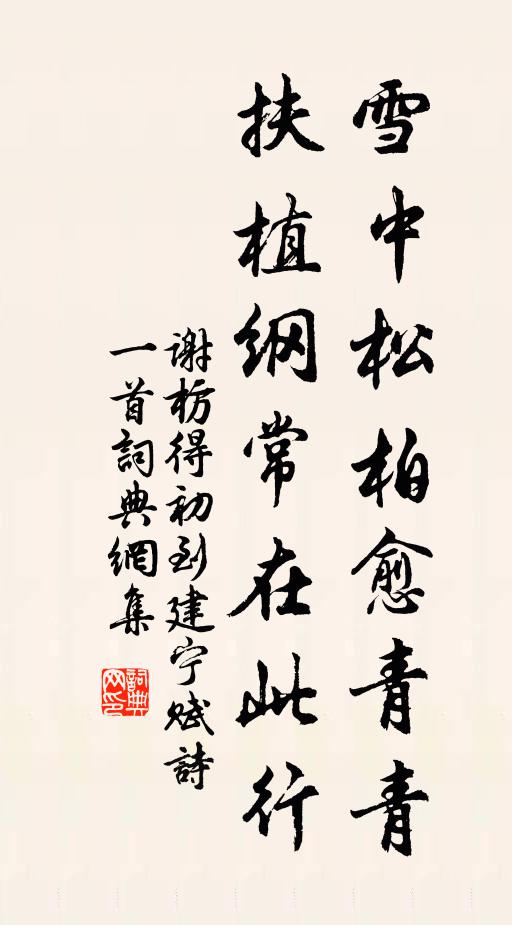 雪中松柏愈青青
扶植纲常在此行
谢枋得初到建宁赋詩
一首詞典網集
詞典
网印